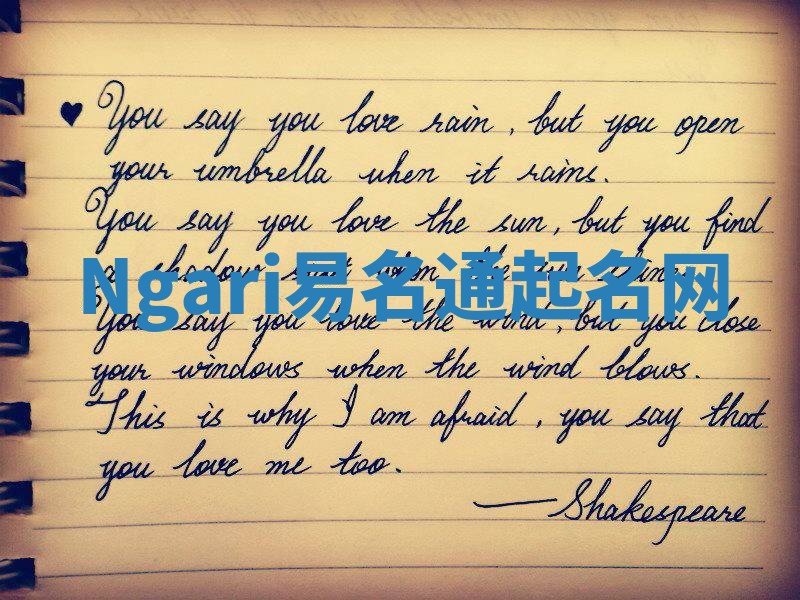 You say you love rain, but you open
your umbrella when it rains.
You say you love the sun, but you find
a shadow spot when the sun shines.
Ngari易名通起名网
You say you love the wind, but you close
your windows when the wind blows.
This is why I am afraid, you say that
you love me too.
—Shakespeare